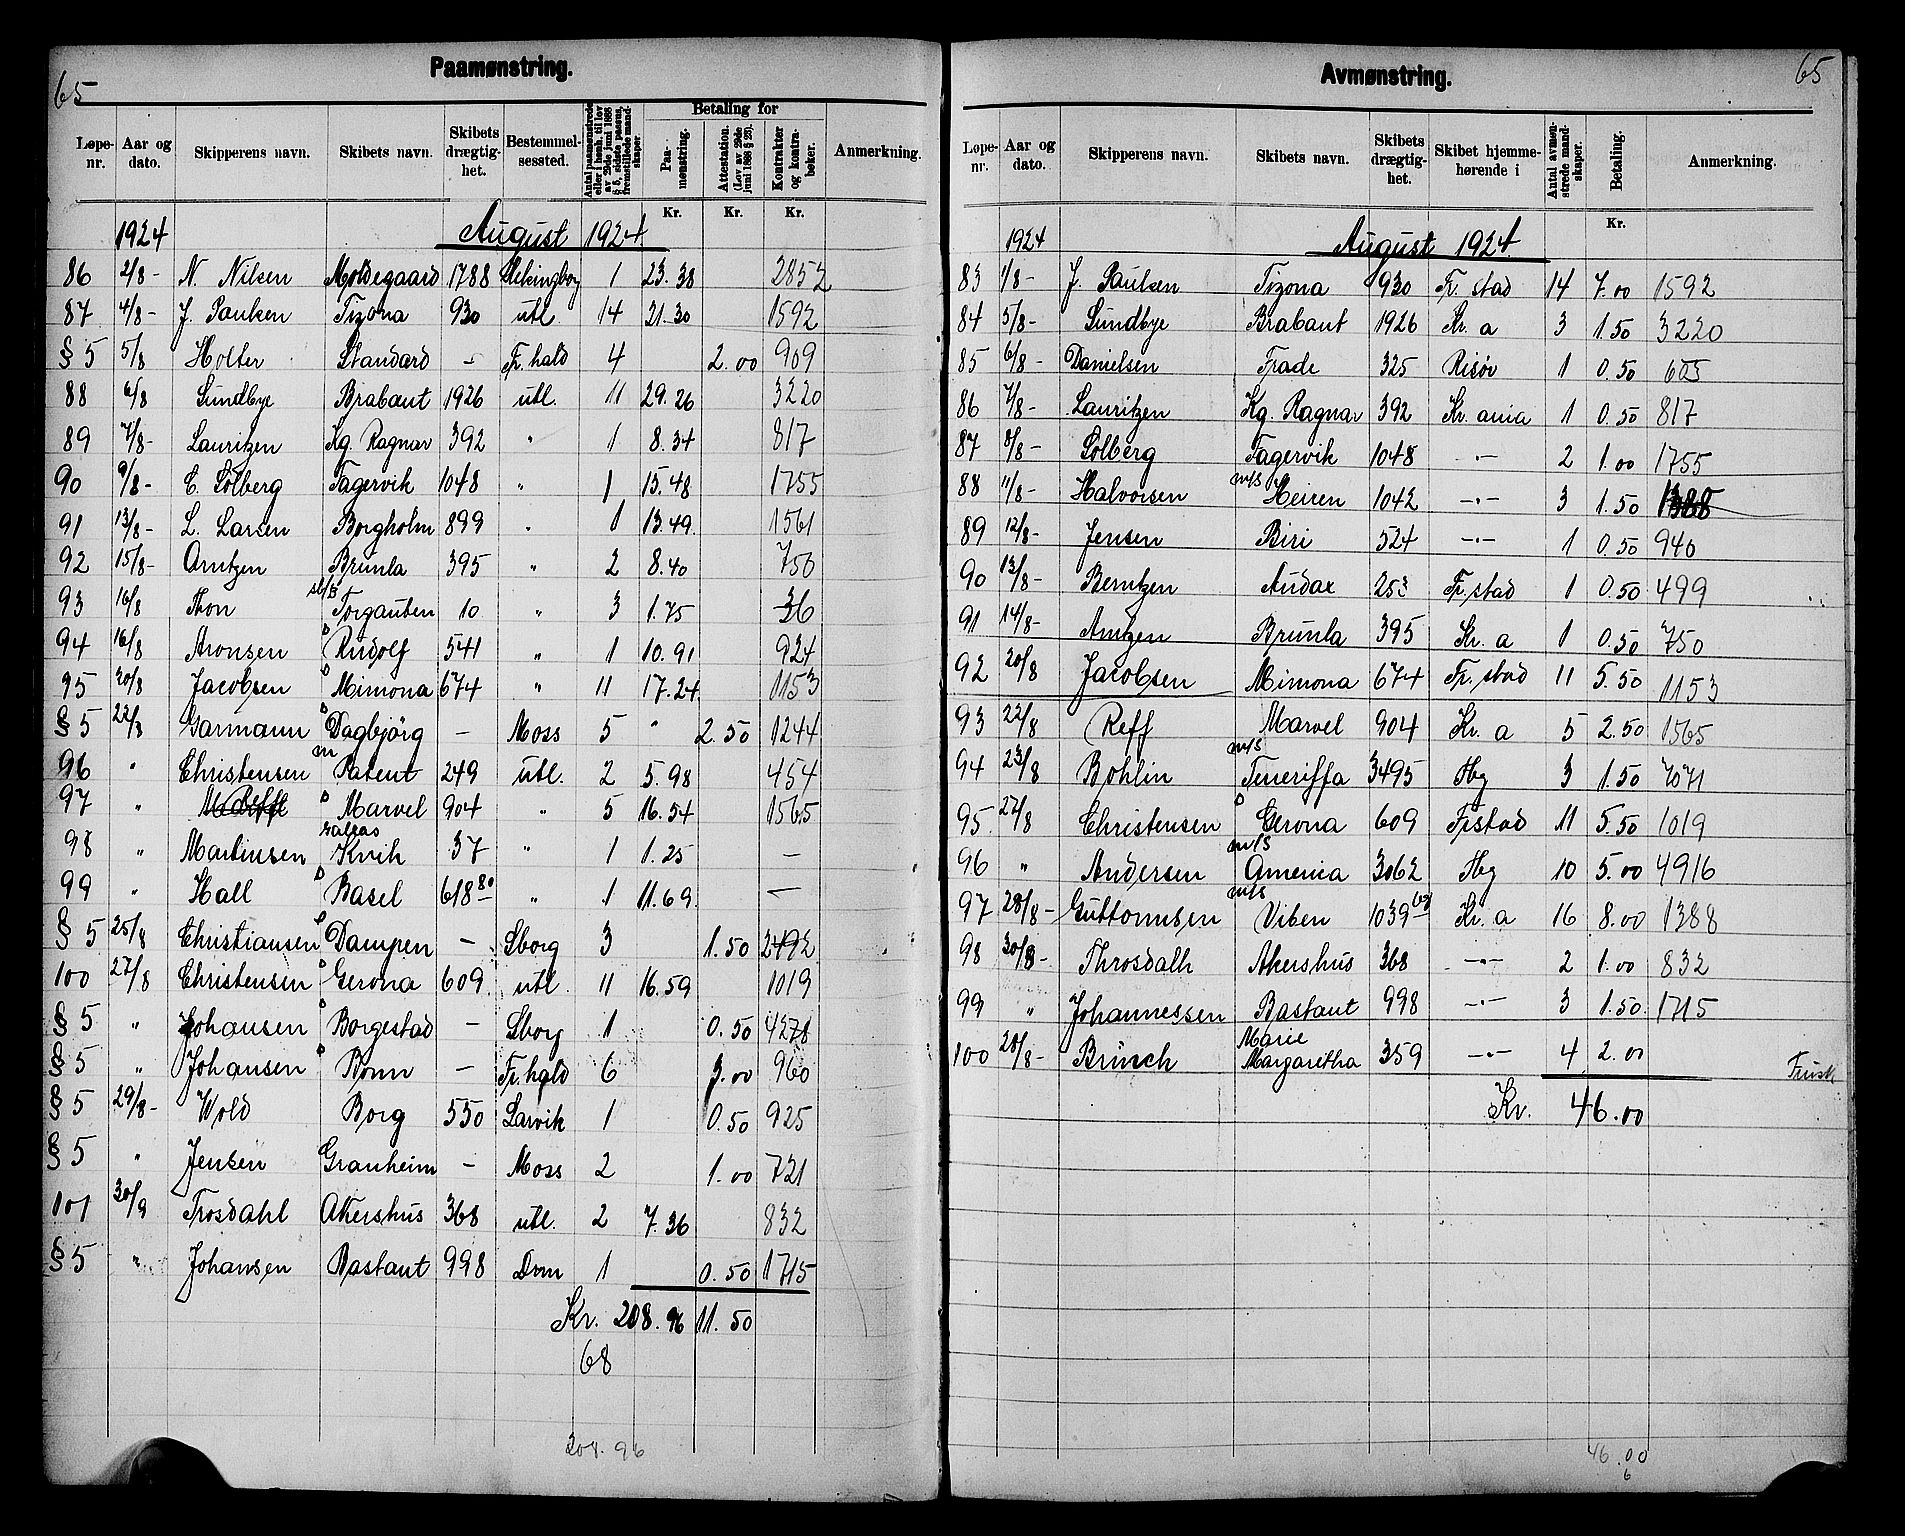 65
Paamønstring.
Løpe-nr. | Aar og dato. | Skipperens navn. | Skibets navn. | Skibets drægtig-het. | Bestemmel-sessted. | Antal paamønstrede eller i henh. til lov av 29de juni 1888 § 5, sidste passus, fremstillede mand-skaper | Betaling for | Paa-mønstring. | Attestation. (Lov. av 29de juni 1888 § 25). | Kontrakter og kontra-bøker. | Anmerkning.
Kr. Kr. Kr.
1924 August 1924
86 2/8- N. Nilsen Moldegaard 1788 Helsingborg 1 23.38 2852
87 4/8- J. Paulsen Tizona 930 utl 14 21.30 1592
§5 5/8 Holter Standard - Fr.hald 4 2.00 909
88 6/8 Sundbye Brabant 1926 utl. 11 29.26 3220
89 7/8- Lauritzen Kg. Ragnar 392 " 1 8.34 817
90 9/8- C. Solberg Fagervik 1048 " 1 15.48 1755
91 13/8- L. Larsen Borgholm 899 " 1 13.49 1561
92 15/8- Arntzen Brunla 395 " 2 8.40 750
93 16/8 Thon Torgauten 10 " 3 1.75 36
94 16/8 Aronsen D Rudolf 541 " 1 10.91 924
95 20/8 Jacobsen D Mimona 674 " 11 17.24 1153
§5 22/8 Garmann D Dagbjörg - Moss 5 " 2.50 1244
96 " Christensen m Patent 249 utl. 2 5.98 454
97 " Reff D Marvel 904 " 5 16.54 1565
98 " Martinsen Kvik 37 " 1 1.25 -
99 " Hall D Basel 618 80 " 1 11.69 -
§5 25/8 Christiansen Dampen - Sborg 3 1.50 2492
100 27/8 Christensen D Gerona 609 utl 11 16.59 1019
§5 " Johansen D Borgestad - Sborg 1 0.50 4278
§5 " Johansen D Bonn - Fr.hald 6 3.00 960
§5 29/8- Wold Borg 550 Larvik 1 0.50 925
§5 " Jensen Granheim - Moss 2 1.00 721
101 30/8 Trosdahl Akershus 368 utl. 2 7.36 832
§5 " Johansen Bastant 998 Drm 1 0.50 1715
Kr. 208.96 11.50
68
208.96
65
Avmønstring.
Løpe-nr. | Aar og dato. | Skipperens navn. | Skibets navn. | Skibets drægtig-het. | Skibet hjemme-hørende i | Antal avmøn-strede mand-skaper. | Betaling. | Anmerkning.
Kr.
1924 August 1924.
83 1/8- J. Paulsen Tizona 930 Fr. stad 14 7.00 1592
84 5/8- Sundbye Brabant 1926 Kr. a 3 1.50 3220
85 6/8- Danielsen Trade 325 Risør 1 0.50 605
86 7/8- Lauritzen Kg. Ragnar 392 Kr. ania 1 0.50 817
87 8/8- Solberg Fagervik 1048 -"- 2 1.00 1755
88 11/8- Halvorsen m/s Heiren 1042 -"- 3 1.50 1388
89 12/8- Jensen Biri 524 -"- 1 0.50 940
90 13/8- Berntzen Audax 253 Fr.stad 1 0.50 499
91 14/8- Arntzen Brunla 395 Kr. a 1 0.50 750
92 20/8 Jacobsen Mimona 674 Fr. stad 11 5.50 1153
93 22/8 Reff Marvel 904 Kr. a 5 2.50 1565
94 23/8 Bohlin m/s Teneriffa 3495 Tbg 3 1.50 7071
95 27/8 Christensen D Gerona 609 Frstad 11 5.50 1019
96 " Andersen m/s America 3062 Tbg 10 5.00 4916
97 28/8- Guttormsen m/s Viben 1039 Kr. a 16 8.00 1388
98 30/8- Throsdalh Akershus 368 -"- 2 1.00 832
99 " Johannessen Bastant 998 -"- 3 1.50 1715
100 28/8- Brinch Marie Margaretha 359 -"- 4 2.00
Kr. 46.00
46.00
6